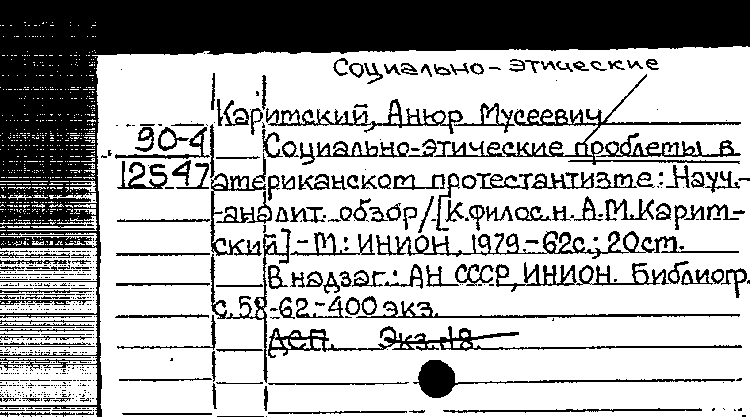 Социально-этические
Каримский, Анюр Мусеевич
90-4 Социально-этические проблемы в
12547 американском протестантизме: Науч.-
-аналит. обзор/[К.филос.н. А.М.Карим-
ский].-М.: ИНИОН, 1979.-62с.; 20см.
В надзаг.: АН СССР, ИНИОН. Библиогр.
с.58-62.-400 экз.
ДСП. Экз.18